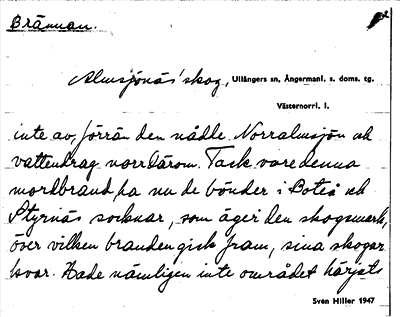 Brännan.
2
Almsjönäs' skog, Ullångers sn, Ångermanl. s. doms. tg.
Västernorrl. l.
inte av, förrän den nådde Norralmsjön och
vattendrag norr därom. Tack vare denna
mordbrand ha nu de bönder i Boteå och
Styrnäs socknar, som äger den skogsmark,
över vilken branden gick fram, sina skogar
kvar. Hade nämligen inte området härjats
Sven Hiller 1947